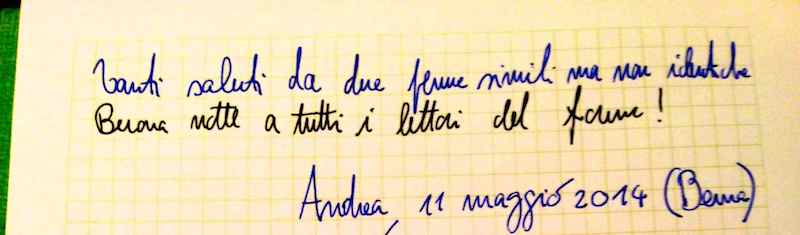 Tanti saluti da due penne simili ma non identiche
Buona notte a tutti i lettori del forum!
Andrea, 11 maggio 2014 (Berna)